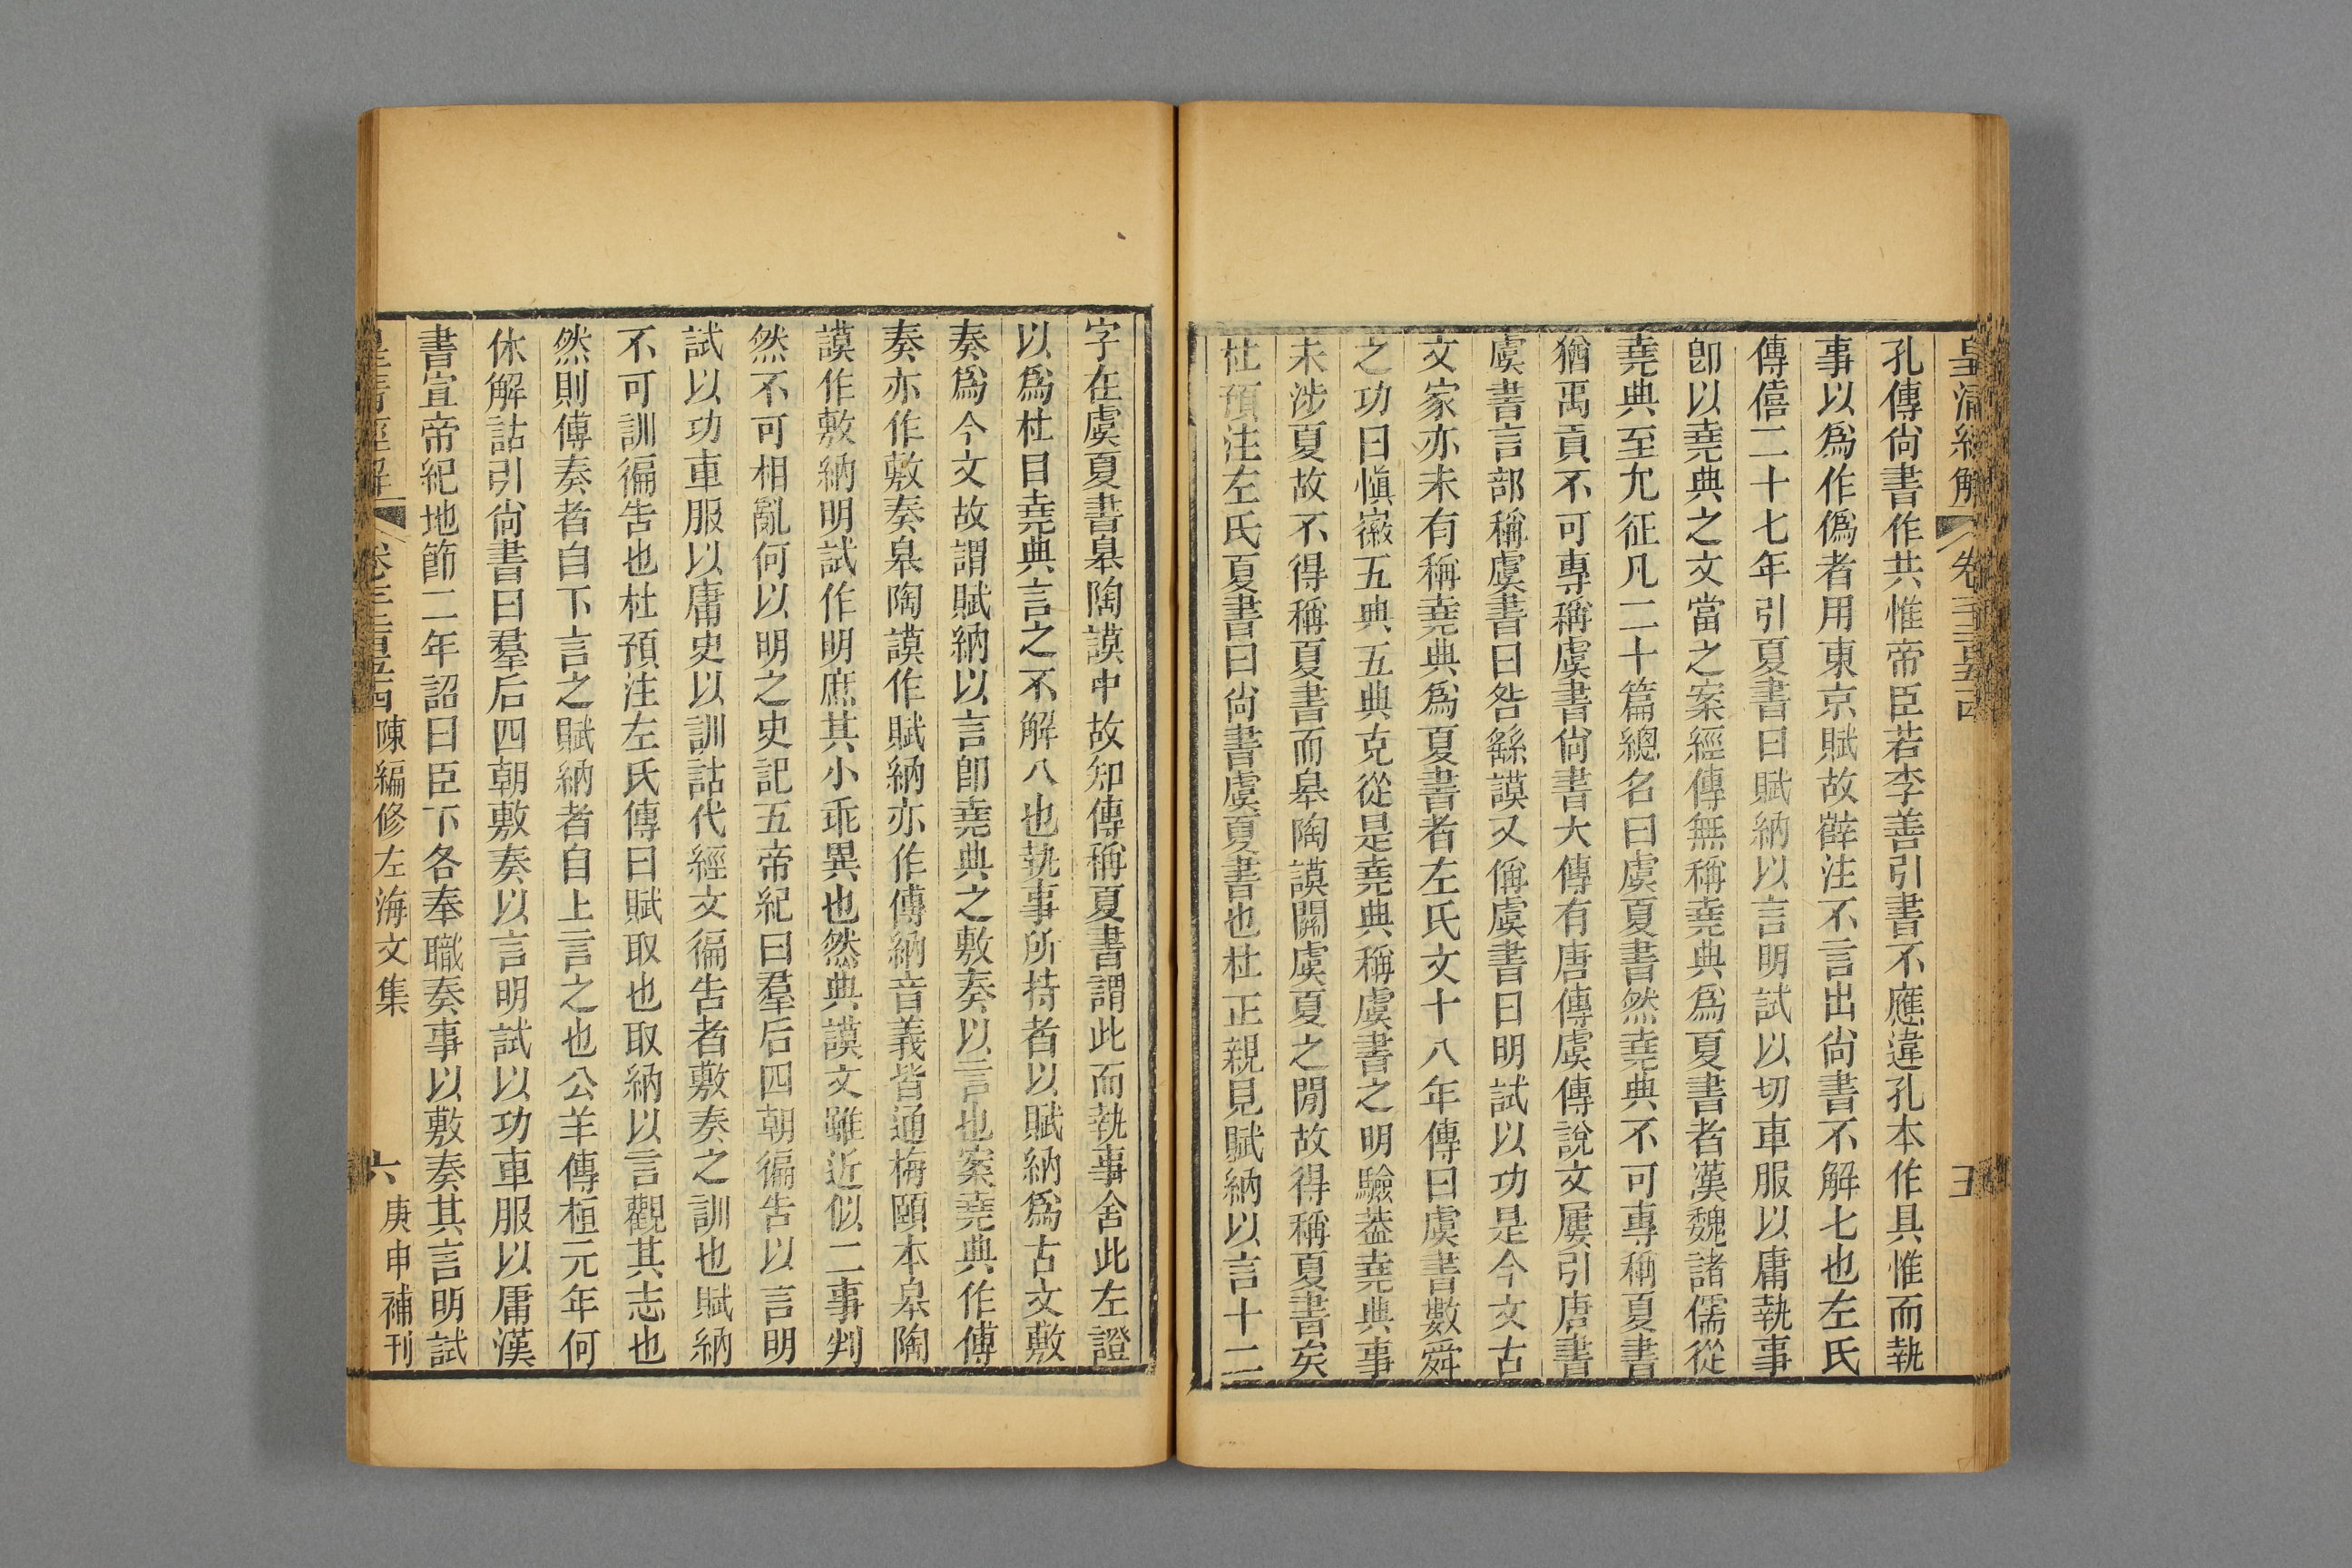 皇清經解 卷三百五十四 五
孔傳尙書作共惟帝臣若李善引書不應違孔本作具惟而執
事以爲作僞者用東京賦故薛注不言出尙書不解七也左氏
傳僖二十七年引夏書曰賦納以言明試以切車服以庸執事
卽以堯典之文當之案經傳無稱堯典爲夏書者漢魏諸儒從
堯典至允征凡二十篇總名曰虞夏書然堯典不可專稱夏書
猶禹貢不可專稱虞書尙書大傳有唐傳虞傳說文屢引唐書
虞書言部稱虞書曰咎繇謨又偁虞書曰明試以功是今文古
文家亦未有稱堯典爲夏書者左氏文十八年傳曰虞書數舜
之功曰愼徽五典五典克從是堯典稱虞書之明驗葢堯典事
未涉夏故不得稱夏書而皋陶謨關虞夏之閒故得稱夏書矣
杜預注左氏夏書曰尙書虞夏書也杜正親見賦納以言十二
字在虞夏書皋陶謨中故知傳稱夏書謂此而執事舍此左證
以爲杜目堯典言之不解八也執事所持者以賦納爲古文敷
奏爲今文故謂賦納以言卽堯典之敷奏以言也案堯典作傅
奏亦作敷奏皋陶謨作賦納亦作傅納音義皆通梅頤本皋陶
謨作敷納明試作明庶其小乖異也然典謨文雖近似二事判
然不可相亂何以明之史記五帝紀曰羣后四朝徧吿以言明
試以功車服以庸史以訓詁代經文徧吿者敷奏之訓也賦納
不可訓徧吿也杜預注左氏傳曰賦取也取納以言觀其志也
然則傅奏者自下言之賦納者自上言之也公羊傳桓元年何
休解詁引尙書曰羣后四朝敷奏以言明試以功車服以庸漢
書宣帝紀地節二年詔曰臣下各奉職奏事以敷奏其言明試
皇清經解 卷三百五十四 陳編修左海文集 六 庚申補刊